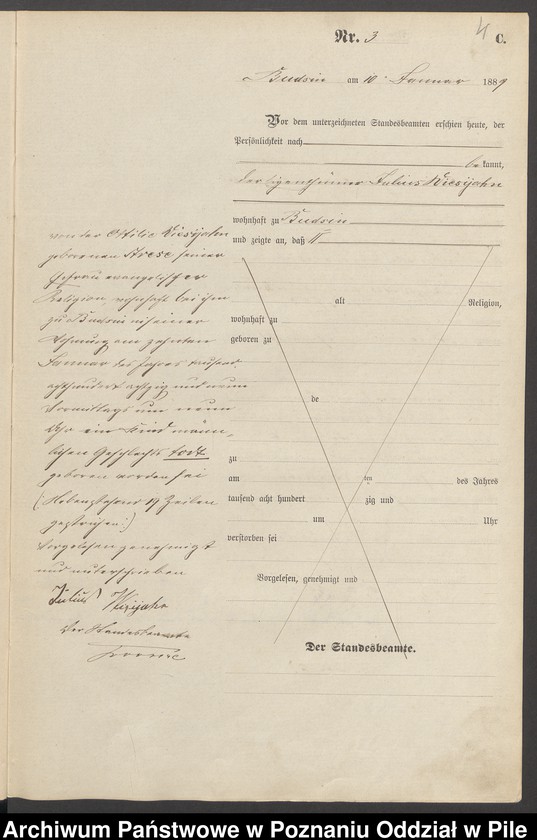 4
Nr. 3 C.
Budsin am 10. Januar 1889
Vor dem unterzeichneten Standesbeamten erschien heute, der
Persönlichkeit nach
bekannt,
der Eigenthümer Julius Wiesijahn
wohnhaft zu Budsin
und zeigte an, daß
von der Ottilie Wiesijahn
geborenen Strese seiner
Ehefrau evangelischer
Religion, wohnhaft bei ihm
zu Budsin in seiner
Wohnung am zehnten
Januar des Jahres tausend
achthundert achtzig und neun
Vormittags um neun
Uhr ein Kind männ-
lichen Geschlechts todt
geboren worden sei
(:Nebenstehend 17 Zeilen
gestrichen:)
Vorgelesen genehmigt
und unterschrieben
Julius Wiesijahn
Der Standesbeamte
alt Religion,
wohnhaft zu
geboren zu
be
zu
am ten des Jahres
tausend acht hundert zig und
um Uhr
verstorben sei
Vorgelesen, genehmigt und
Der Standesbeamte.
Archiwum Państwowe w Poznaniu Oddział w Pile